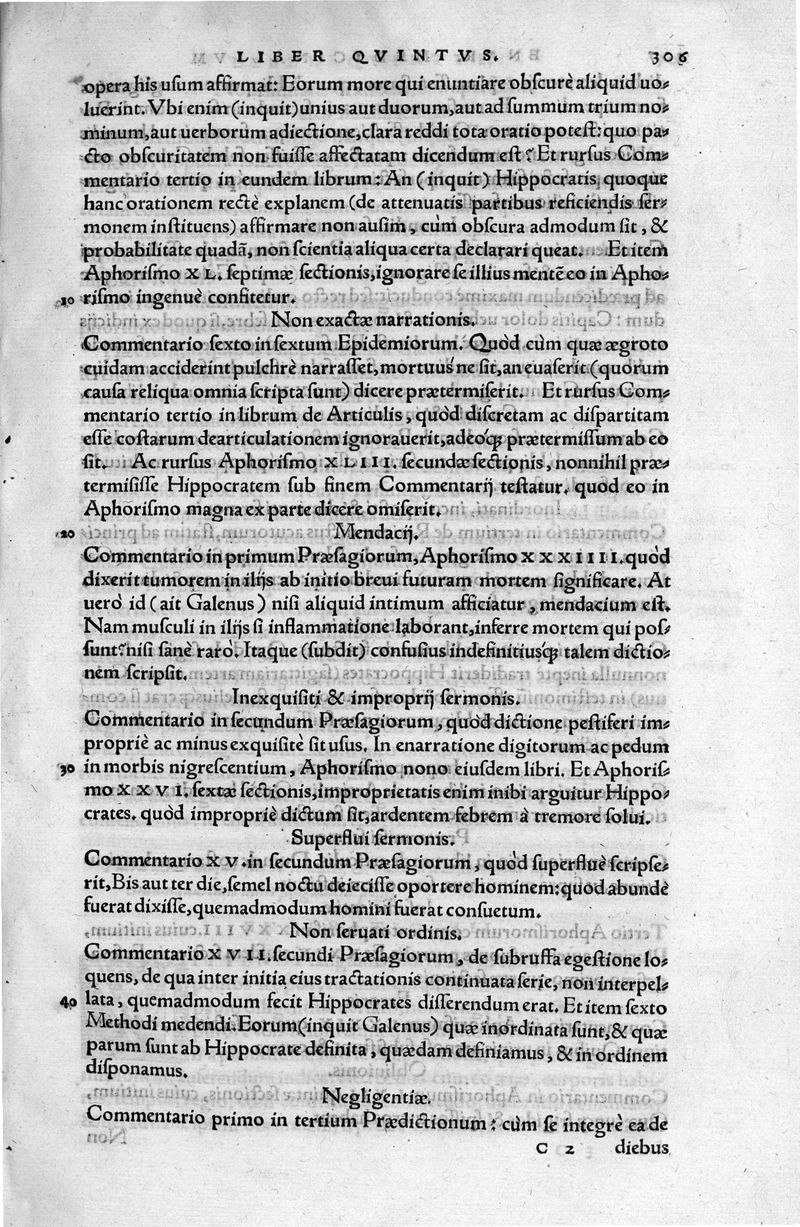 LIBER QVINTVS. 306
opera his usum affirmat: Eorum more qui enuntiare obscurè aliquid uo-
luerint. Vbi enim (inquit) unius aut duorum, aut ad summum trium no-
minum, aut uerborum adiectione, clara reddi tota oratio potest: quo pa-
cto obscuritatem non fuisse affectatam dicendum est? Et rursus Com-
mentario tertio in eundem librum: An (inquit) Hippocratis quoque
hanc orationem rectè explanem (de attenuatis partibus reficiendis ser-
monem instituens) affirmare non ausim, cùm obscura admodum sit, &
probabilitate quadã, non scientia aliqua certa declarari queat. Et item
Aphorismo XL. septimæ sectionis, ignorare se illius mentẽ eo in Apho-
10 rismo ingenuè confitetur.
Non exactæ narrationis.
Commentario sexto in sextum Epidemiorum. Quòd cùm quæ ægroto
cuidam acciderint pulchrè narrasset, mortuus ne sit, an euaserit (quorum
causa reliqua omnia scripta sunt) dicere prætermiserit. Et rursus Com-
mentario tertio in librum de Articulis, quòd discretam ac dispartitam
esse costarum dearticulationem ignorauerit, adeoq́; prætermissum ab eo
sit. Ac rursus Aphorismo XLIII. secundæ sectionis, nonnihil præ-
termisisse Hippocratem sub finem Commentarij testatur. quod eo in
Aphorismo magna ex parte dicere omiserit.
20 Mendacij.
Commentario in primum Præsagiorum, Aphorismo XXXIIII. quòd
dixerit tumorem in ilijs ab initio breui futuram mortem significare. At
uerò id (ait Galenus) nisi aliquid intimum afficiatur, mendacium est.
Nam musculi in ilijs si inflammatione laborant, inferre mortem qui pos-
sunt? nisi sanè rarò. Itaque (subdit) confusius indefinitiusq́; talem dictio-
nem scripsit.
Inexquisiti & improprij sermonis.
Commentario in secundum Præsagiorum, quòd dictione pestiferi im-
propriè ac minus exquisitè sit usus. In enarratione digitorum ac pedum
30 in morbis nigrescentium, Aphorismo nono eiusdem libri. Et Aphoris-
mo XXVI. sextæ sectionis, improprietatis enim inibi arguitur Hippo-
crates. quòd impropriè dictum sit, ardentem febrem à tremore solui.
Superflui sermonis.
Commentario XV. in secundum Præsagiorum, quòd superfluè scripse-
rit, Bis aut ter die, semel noctu deiecisse oportere hominem: quod abundè
fuerat dixisse, quemadmodum homini fuerat consuetum.
Non seruati ordinis.
Commentario XVII. secundi Præsagiorum, de subruffa egestione lo-
quens, de qua inter initia eius tractationis continuata serie, non interpel-
40 lata, quemadmodum fecit Hippocrates disserendum erat. Et item sexto
Methodi medendi. Eorum (inquit Galenus) quæ inordinata sunt, & quæ
parum sunt ab Hippocrate definita, quædam definiamus, & in ordinem
disponamus.
Negligentiæ.
Commentario primo in tertium Prædictionum: cùm se integrè ea de
C 2 diebus